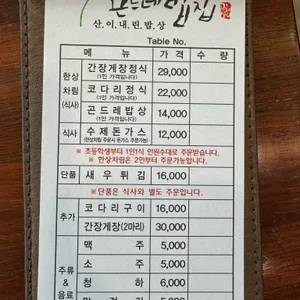 곤드레밥집
산.이.내.린.밥.상
Table No.
메 뉴 가 격 수 량
한상차림(식사) 간장게장정식 (1인 가격입니다) 29,000
코다리정식 (1인 가격입니다) 22,000
곤드레밥상 (1인 가격입니다) 14,000
식사 수제돈가스 (한상차림 주문시 돈가스 주문가능) 12,000
※ 초등학생부터 1인1식 인원수대로 주문받습니다.
※ 한상차림은 2인부터 주문가능합니다.
단품 새우튀김 16,000
※단품은 식사와 별도 주문입니다.
추가 코다리구이 16,000
간장게장(2마리) 30,000
주류&음료 맥 주 5,000
소 주 5,000
청 하 6,000